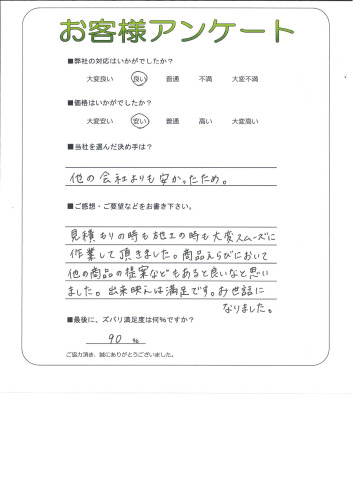 お客様アンケート
■弊社の対応はいかがでしたか?
大変良い 良い 普通 不満 大変不満
■価格はいかがでしたか?
大変安い 安い 普通 高い 大変高い
■当社を選んだ決め手は?
他の会社よりも安かったため。
■ご感想・ご要望などをお書き下さい。
見積もりの時も施工の時も大変スムーズに
作業して頂きました。商品えらびにおいて
他の商品の提案などもあると良いなと思い
ました。出来映えは満足です。お世話に
なりました。
■最後に、ズバリ満足度は何%ですか?
90 %
ご協力頂き、誠にありがとうございました。